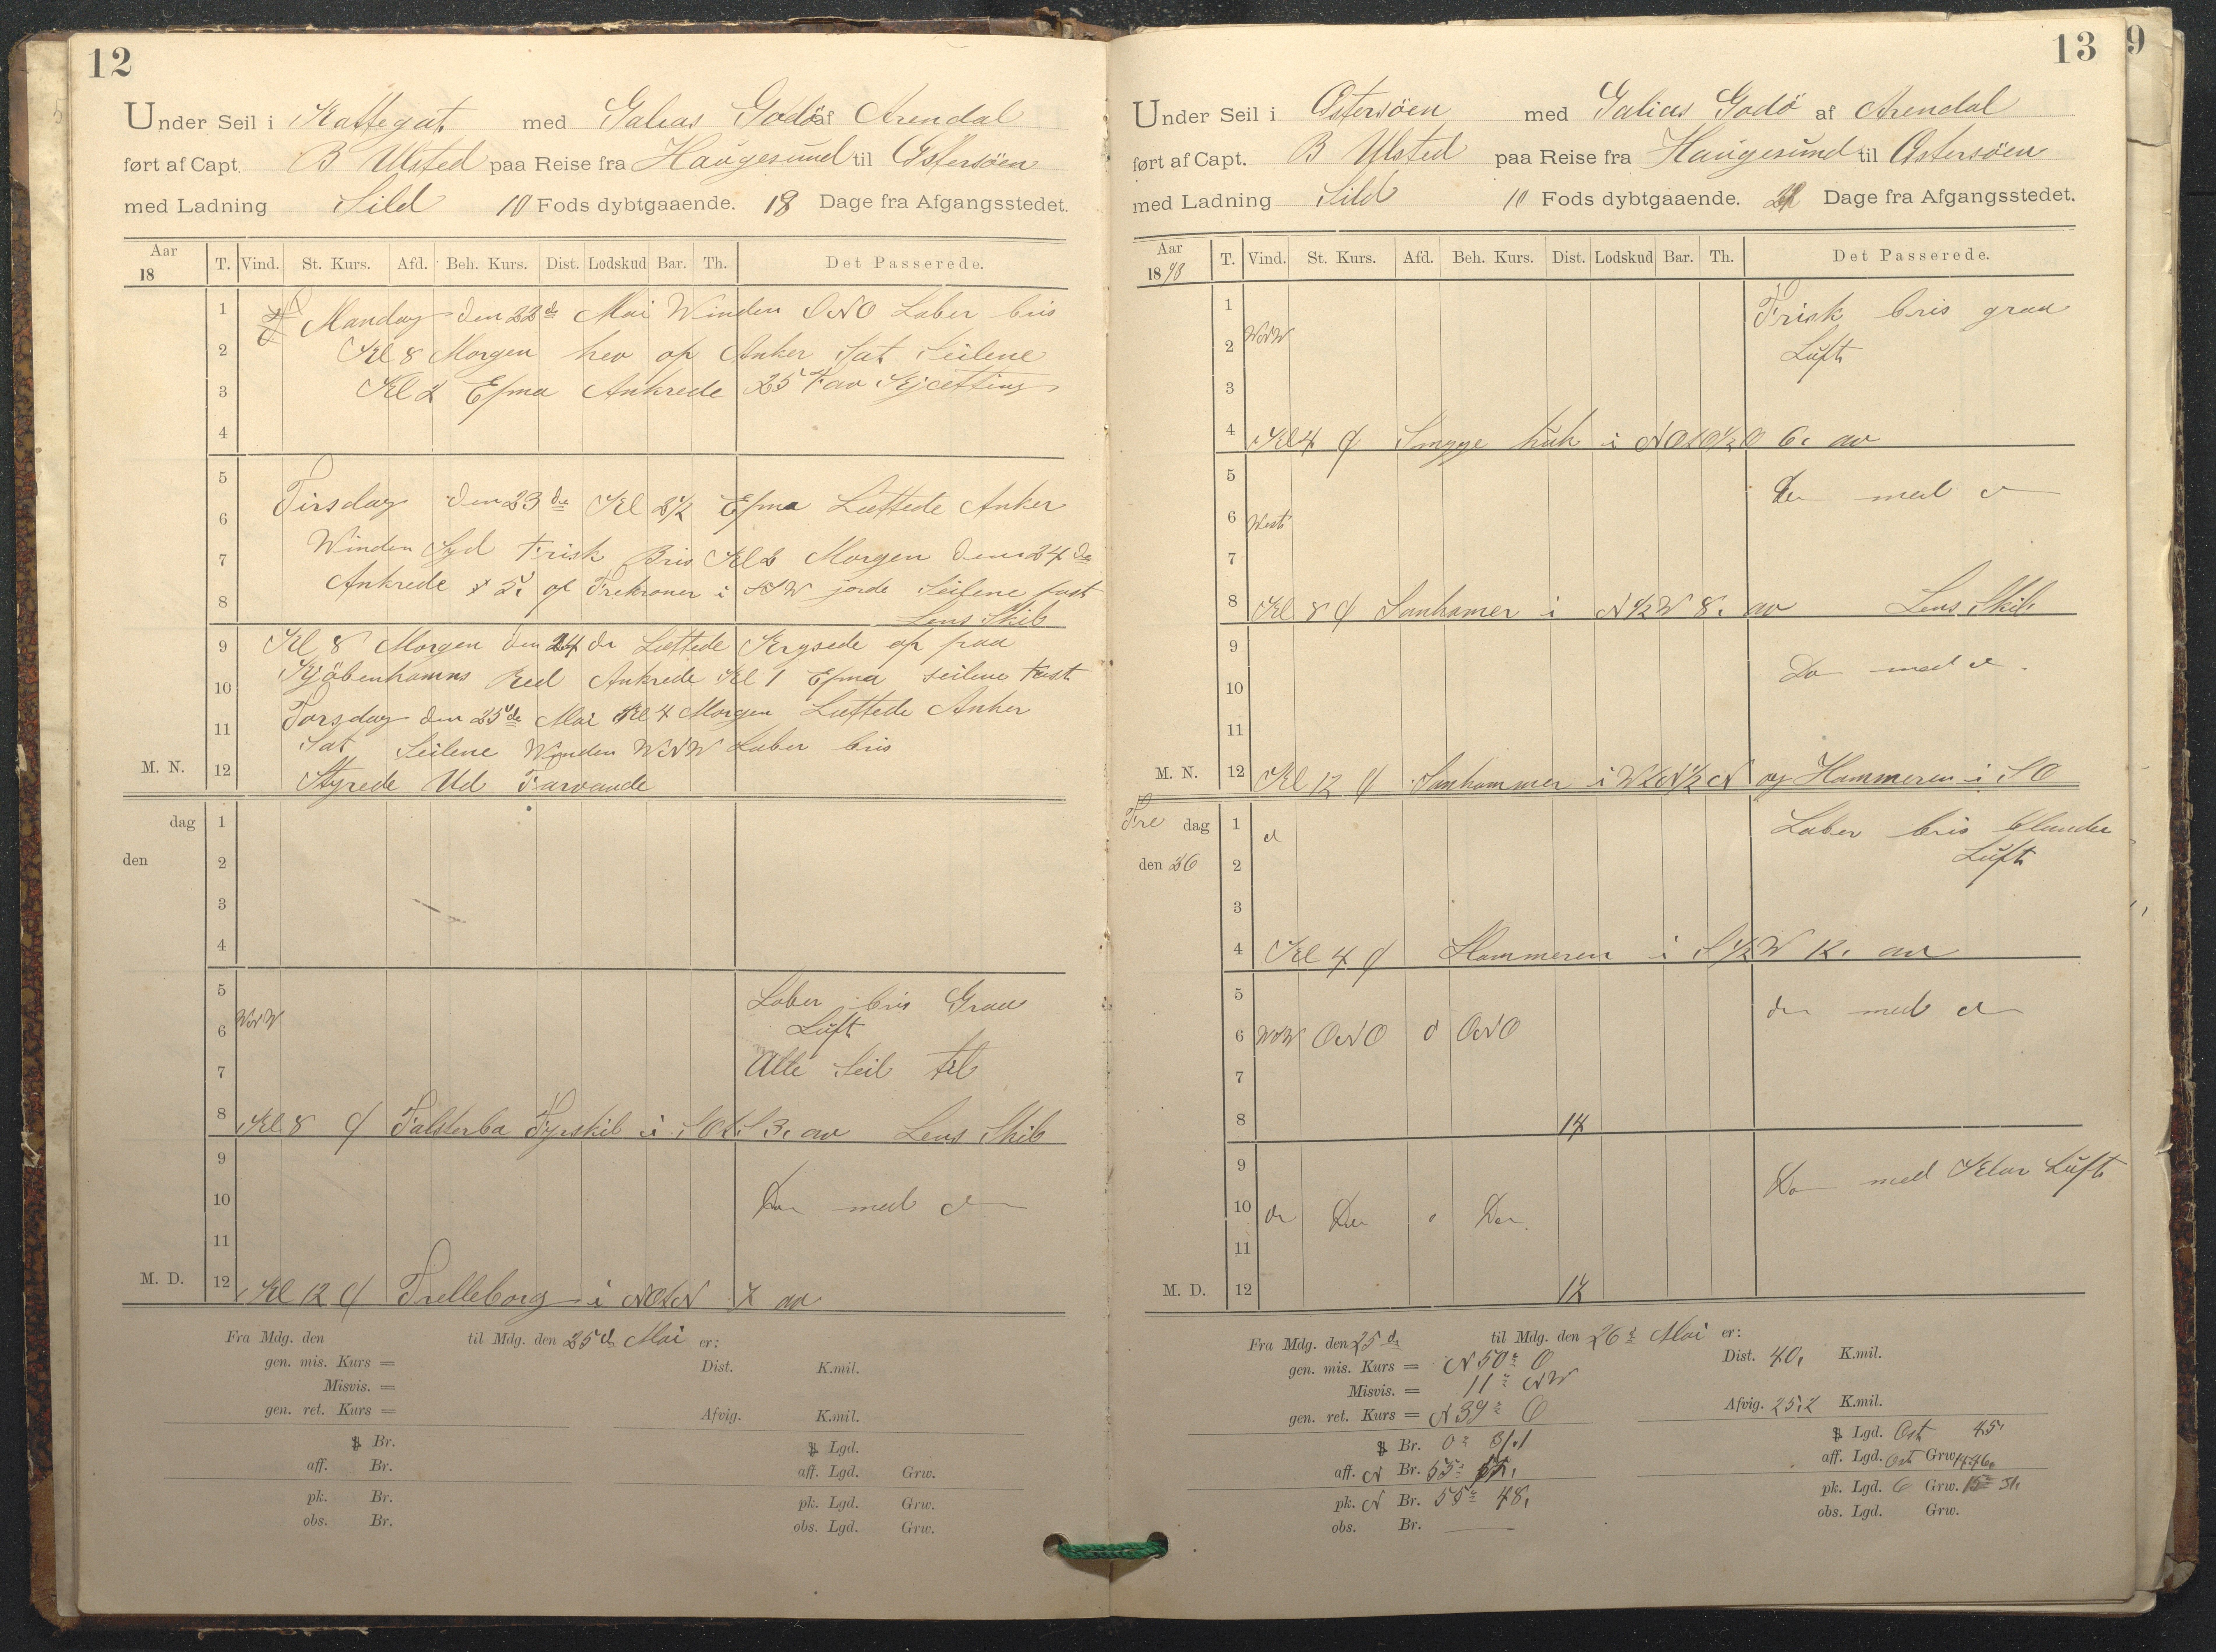 12
Under Seil i Kattegat med Galias Godö af Arendal
ført af Capt. B Ulsted paa Reise fra Haugesund til Østersöen
med Ladning Sild 10 Fods dybtgaaende. 18 Dage fra Afgangsstedet.
Aar 18 T. Vind. St. Kurs. Afd. Beh. Kurs. Dist. Lodskud Bar. Th. Det Passerede.
1 Mandag den 22de Mai Winden ONO Laber bris
2 Kl 8 Morgen hev op Anker Sat Seilene
3 Kl 2 Efma Ankrede 25 F av Kjætting
4
5 Tirsdag den 23de Kl 2 1/2 Efma Lættede Anker
6
7 Winden Syd Frisk Bris Kl 2 Morgen den 24de
8 Ankrede 5. of Trekroner i SSW jorde Seilene fast
Lens Skib
9 Kl 8 Morgen den 24 de Lettede Krysede op paa
10 Kjöbenhamns Red Ankrede Kl 1 Efma seilene Fast
11 Torsdag den 25de Mai Kl 4 Morgen Lættede Anker
Sat Seilene Winden WNW Laber bris
M. N. 12 Styrede Ud Farvande
dag 1
den 2
3
4
5 Laber bris Graa
6 WNW Luft
7 Alle Seil til
8 Kl 8 Falsterbo Fyrskib i SOtS 3. av Lens Skib
9
10 Do med d
11
M. D. 12 Kl 12 Trelleborg i NOtN 7 av
Fra Mdg. den til Mdg. den 25de Mai er:
gen. mis. Kurs = Dist. K.mil.
Misvis. =
gen. ret. Kurs = Afvig. K.mil.
Br. Lgd.
aff. Br. aff. Lgd. Grw.
pk. Br. pk. Lgd. Grw.
obs. Br. obs. Lgd. Grw.
13
9
Under Seil i Østersöen med Galias Godö af Arendal
ført af Capt. B Ulsted paa Reise fra Haugesund til Østersöen
med Ladning Sild 10 Fods dybtgaaende. Dage fra Afgangsstedet.
Aar 1898 T. Vind. St. Kurs. Afd. Beh. Kurs. Dist. Lodskud Bar. Th. Det Passerede.
1 Frisk bris graa
2 WNW Luft
3
4 Kl 4 Smygge huk i NOtO 1/2 O 6. av
5 Do med d
6 West
7
8 Kl 8 Sanhamer i N 1/2 W 8. av Lens Skib
9 Do med d
10
11
M. N. 12 Kl 12 Sanhammer i WtN 1/2 N og Hammeren i SO
Fre dag 1 d Laber bris blandet
den 26 2 Luft
3
4 Kl 4 Hammeren i S 1/2 W 12. av
5 do med d
6 WNW ONO 0 ONO
7
8 14
9 Do med Klar Luft
10 do Do 0 Do
11
M. D. 12 12
Fra Mdg. den 25de til Mdg. den 26de Mai er:
gen. mis. Kurs = N 50° O Dist. 40. K.mil.
Misvis. = 11° NW
gen. ret. Kurs = N 39° O Afvig. 25.2 K.mil.
Br. 0° 31.1 Lgd. Ost 45.
aff. N Br. 55° aff. Lgd. Ost Grw. 14.46.
pk. N Br. 55° 48. pk. Lgd. O Grw. 15° 31.
obs. Br. — obs. Lgd. Grw.